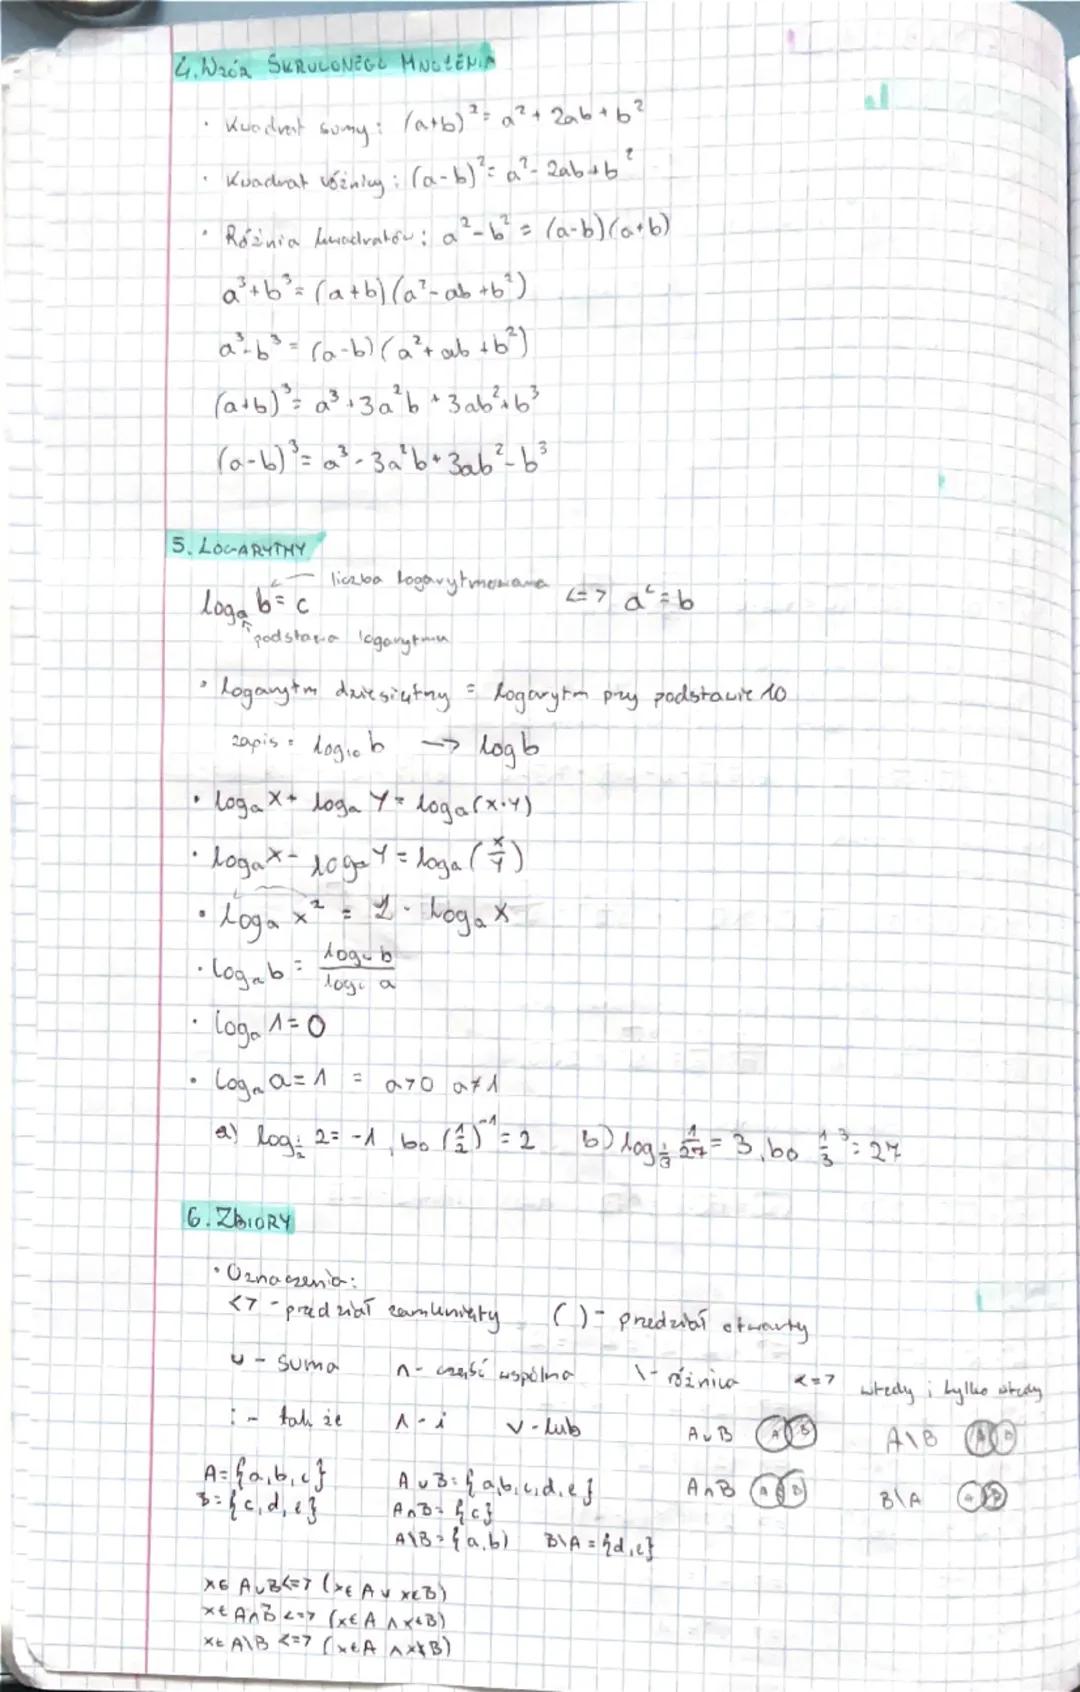 4. WZÓR SKRÓCONEGO MNOŻENIA
• Kwadrat sumy: (a+b)² = a² + 2ab + b²
• Kwadrat różnicy: (a-b)² = a² - 2ab + b²
• Różnia kwadratów: a² - b² = (a-b)(a+b)
a³+b³ = (a+b)(a² - ab + b²)
a³-b³ = (a-b)(a² + ab + b²)
(a+b)³ = a³ + 3a²b + 3ab² + b³
(a-b)³ = a³ - 3a²b + 3ab² - b³
5. LOGARYTMY
logₐ b = c ← liczba logarytmowana <=> aᶜ = b
podstawa logarytmu
• logarytm dziesiętny = logarytm przy podstawie 10
zapis: log₁₀ b → log b
• logₐ X + logₐ Y = logₐ (X·Y)
• logₐ X - logₐ Y = logₐ (X/Y)
• logₐ x² = 2 · logₐ X
• logₐ b = log꜀ b / log꜀ a
• logₐ 1 = 0
• logₐ a = 1 = a>0 a≠1
a) log½ 2 = -1, bo (1/2)⁻¹ = 2 b) log⅓ 1/27 = 3, bo 1/3³ = 27
6. ZBIORY
• Oznaczenia:
<> - przedział zamknięty ( ) - przedział otwarty
∪ - suma ∩ - część wspólna \ - różnica <=> wtedy i tylko wtedy
: - tak że ∧ - i ∨ - lub A∪B A B A\B A B
A = {a,b,c} A∪B = {a,b,c,d,e} A∩B A B B\A A B
B = {c,d,e} A∩B = {c}
A\B = {a,b) B\A = {d,e}
x∈ A∪B <=> (x∈A ∨ x∈B)
x∈ A∩B <=> (x∈A ∧ x∈B)
x∈ A\B <=> (x∈A ∧ x∉B)